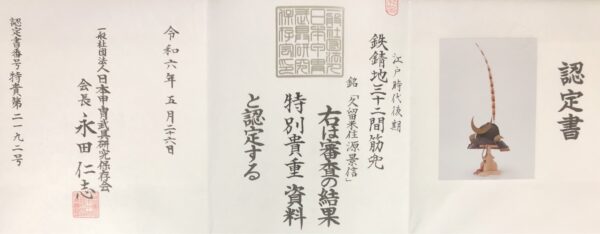 認定書
江戸時代後期
鉄錆地三十二間筋兜
銘「久留米住源景信」
右は審査の結果
特別貴重資料
と認定する
令和六年五月二十六日
一般社団法人日本甲冑武具研究保存会
会長 永田仁志
認定書番号特貴第二一九二号